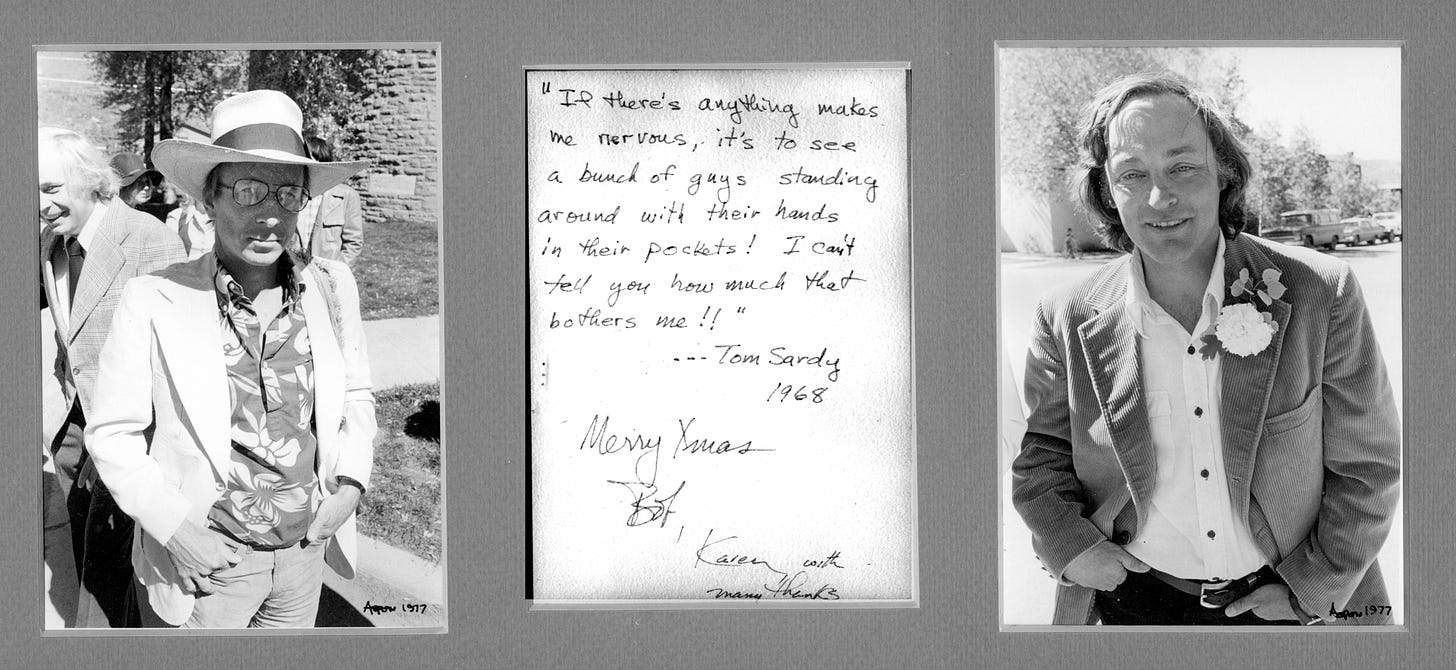 "If there's anything makes
me nervous, it's to see
a bunch of guys standing
around with their hands
in their pockets! I can't
tell you how much that
bothers me!!"
--- Tom Sardy
1968
Merry Xmas
Bob,
Karen with
many thanks
Aspen 1977
Aspen 1977